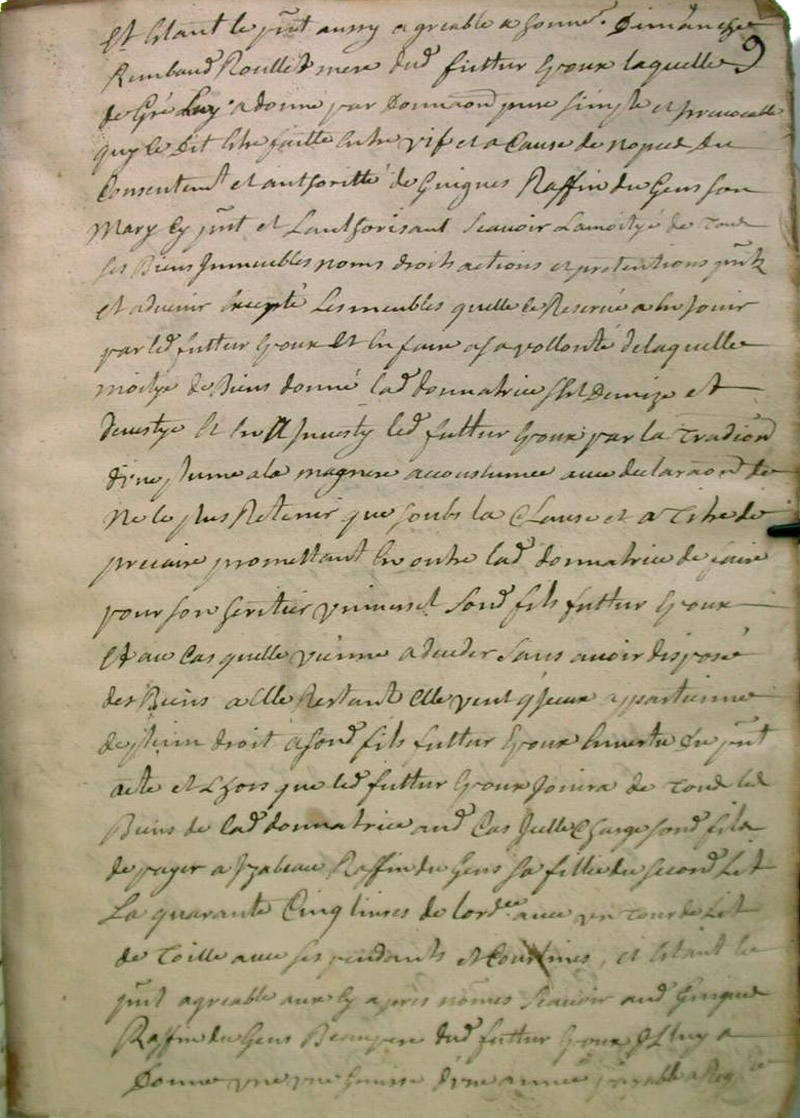 Et Estant le pñt aussy agreable a honne^r. Dimanche 9
Rimbaud Roullet mere dud futtur Epoux laquelle
de Gré Luy a donne par Donnãon pure simple et irrevocable
quy se Dit Estre faitte Entre vif et a Cause de nopces du
Consentem^t et authoritté de Guigues Raffin du Gens son
Mary Cy pñt et Lauthorisant Scavoir Lamoityé de tous
ses Biens Immeubles noms droits actions et pretentions pñtz
et advenir Excepté Les meubles quelle se Reserve a En Jouir
par led futtur Epoux Et En faire a sa vollonté delaquelle
moitye de Biens donné lad donnatrice sest Demize et
devestye Et En A Investy led futtur Epoux par la tradiõn
d'une plume ala magnere accoustumee avec declaraõn de
Ne le plus Retenir que soubs la Clause et a Titre de
precaire promettant En outre lad donnatrice de faire
pour son heritier universel Sond fils futtur Epoux
Et au Cas quelle vienne a deceder Sans avoir disposé
des Biens a Elle Restant Elle veut q'Iceux appartienne
de plein droit a sond fils futtur Epoux En vertu du pñt
acte et Lhors que led futtur Epoux Jouira de tous les
Biens de lad donnatrice aud Cas Icelle Charge sond fils
de payer a Izabeau Raffin du Gens sa fille du second Lit
La quarante Cinq livres de lord^ce avec un tour de Lit
de Toille avec ses pendants et Courtines, et Estant le
pñt agreable aux Cy apres nommes Scavoir aud Guigues
Raffin du Gens Beaupere dud futtur Epoux Il Luy a
Donne une une Genisse d'une annee payable a